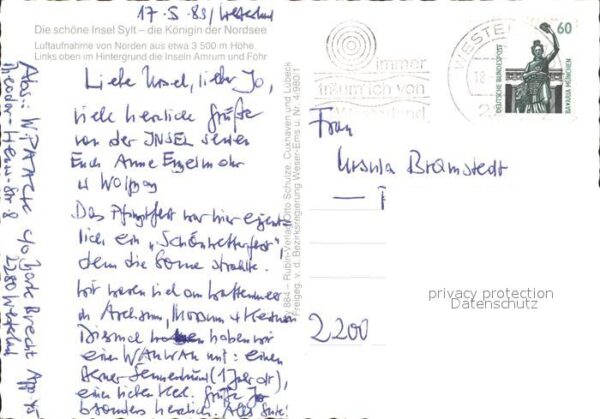 17-5-89/Westerland
Die schöne Insel Sylt – die Königin der Nordsee
Luftaufnahme von Norden aus etwa 3 500 m Höhe.
Links oben im Hintergrund die Inseln Amrum und Föhr
Liebe Ursel, lieber Jo,
viele herzliche Grüße
von der INSEL senden
Euch Anne Engelmohr
u Wolfgang
Das Pfingstfest war hier eigent-
lich ein „Schönwetterfest",
denn die Sonne strahlte.
Wir waren viel am Wattenmeer
in Archsum, Morsum + Keitum
Diesmal haben wir
einen WAUWAU mit: einen
Berner-Sennenhund (1 Jahr alt),
ein lieber Kerl. Grüße Jo
besonders herzlich. Alles Gute!
Abs.: W. PAATSCH c/o Brecht App
Theodor-Heuss-Str 8
2280 Westerland
884 – Rubin-Verlag Otto Schulze, Cuxhaven und Lübeck
Freigeg. v. d. Bezirksregierung Weser-Ems u. Nr. 4-980/1
immer
träum'ich von
Westerland
WESTE
18.
2
60
DEUTSCHE BUNDESPOST
BAVARIA MÜNCHEN
Frau
Ursula Bramstedt
2200
privacy protection
Datenschutz